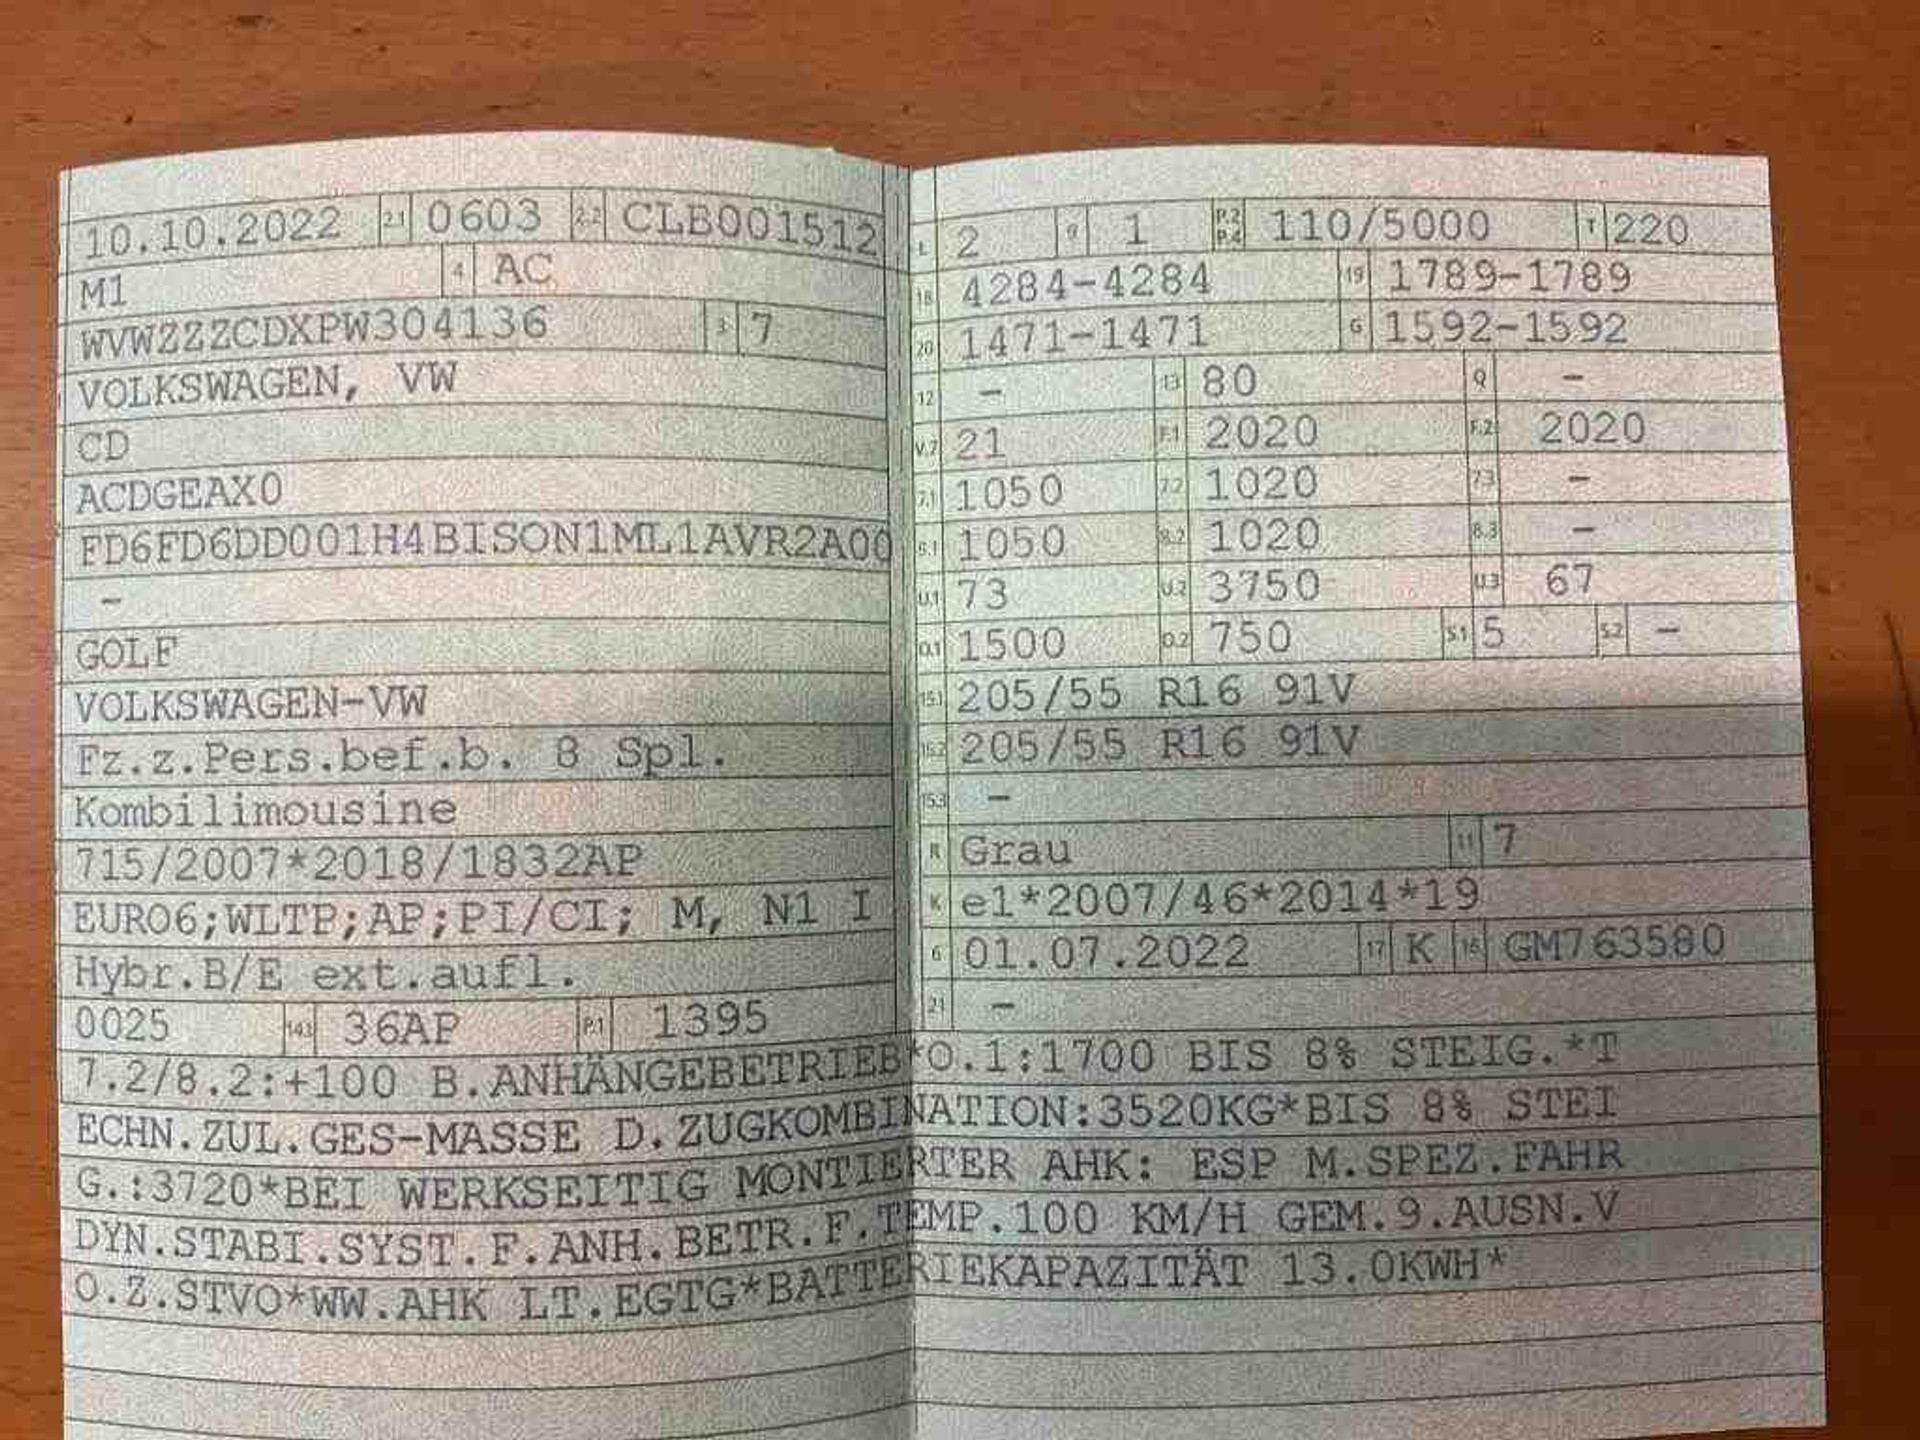 10.10.2022 2.1 0603 2.2 CLB001512
M1 4 AC
WVWZZZCDXPW304136 3 7
VOLKSWAGEN, VW
CD
ACDGEAX0
FD6FD6DD001H4BISON1ML1AVR2A00
-
GOLF
VOLKSWAGEN-VW
Fz.z.Pers.bef.b. 8 Spl.
Kombilimousine
715/2007*2018/1832AP
EURO6;WLTP;AP;PI/CI; M, N1 I
Hybr.B/E ext.aufl.
0025 14.1 36AP P.1 1395
L 2 9 1 P.2 P.4 110/5000 T 220
18 4284-4284 19 1789-1789
20 1471-1471 G 1592-1592
12 - 13 80 Q -
V.7 21 F.1 2020 F.2 2020
7.1 1050 7.2 1020 7.3 -
8.1 1050 8.2 1020 8.3 -
U.1 73 U.2 3750 U.3 67
O.1 1500 O.2 750 S.1 5 S.2 -
15.1 205/55 R16 91V
15.2 205/55 R16 91V
15.3 -
R Grau 11 7
K e1*2007/46*2014*19
6 01.07.2022 17 K 16 GM763580
21 -
7.2/8.2:+100 B.ANHÄNGEBETRIEB*O.1:1700 BIS 8% STEIG.*T
ECHN.ZUL.GES-MASSE D.ZUGKOMBINATION:3520KG*BIS 8% STEI
G.:3720*BEI WERKSEITIG MONTIERTER AHK: ESP M.SPEZ.FAHR
DYN.STABI.SYST.F.ANH.BETR.F.TEMP.100 KM/H GEM.9.AUSN.V
O.Z.STVO*WW.AHK LT.EGTG*BATTERIEKAPAZITÄT 13.0KWH*